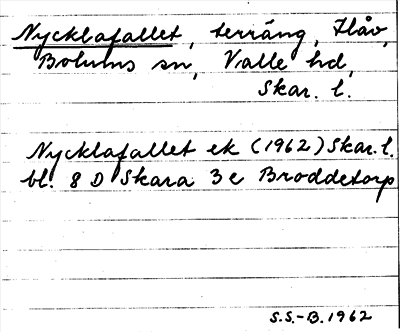 Nycklafallet, terräng, Håv,
Bolums sn, Valle hd,
Skar. l.
Nycklafallet ek (1962) Skar. l.
bl. 8 D Skara 3 e Broddetorp
S.S.-B. 1962